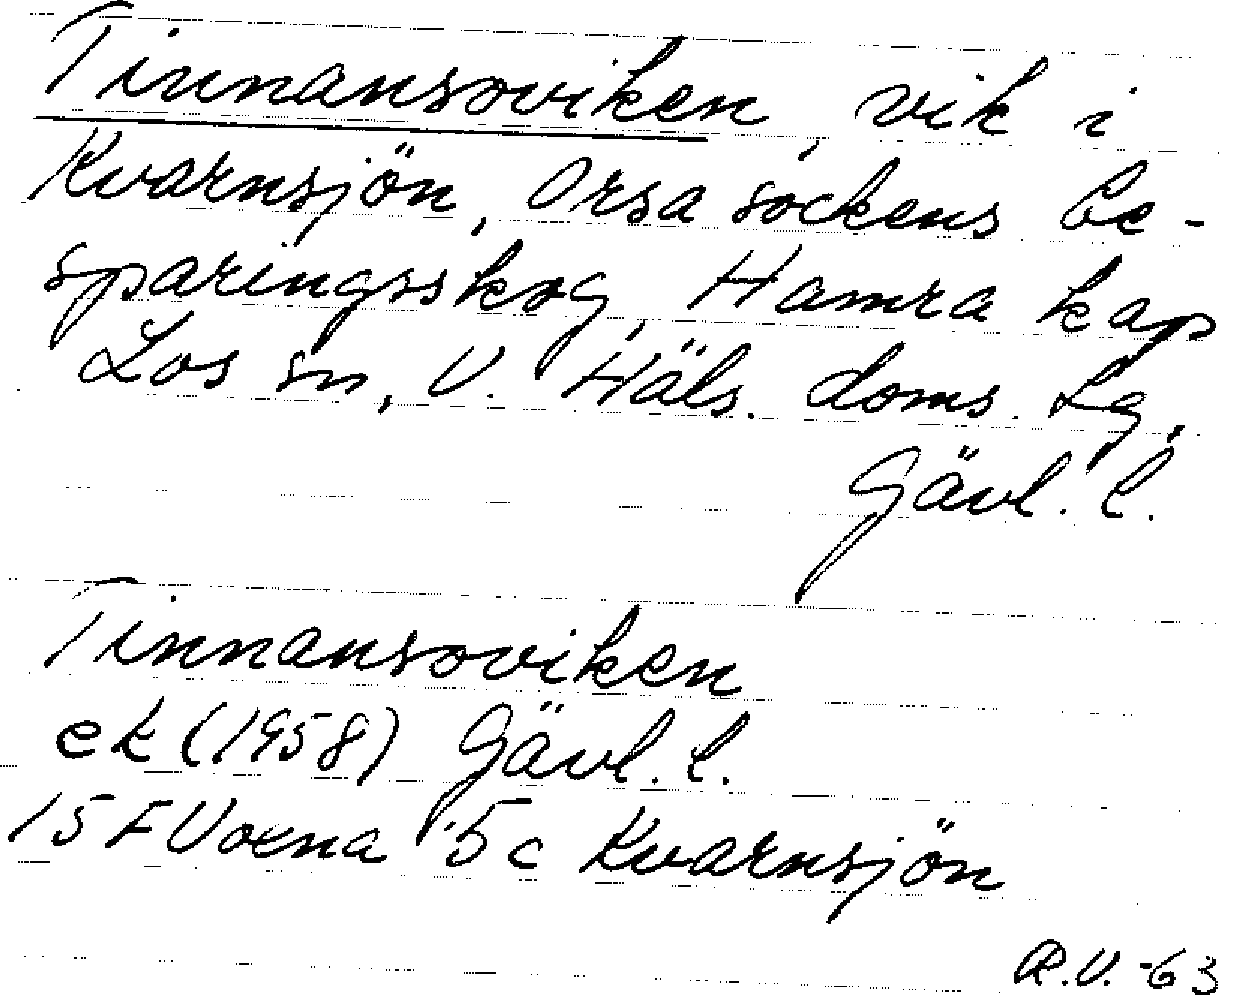 Tinnansoviken, vik i
Kvarnsjön, Orsa sockens be-
sparingsskog, Hamra kap
Los sn, V. Häls. doms. Lg,
Gävl. l.
Tinnansoviken
ek (1958) Gävl. l.
15 F Voxna 5c Kvarnsjön
R.V. -63